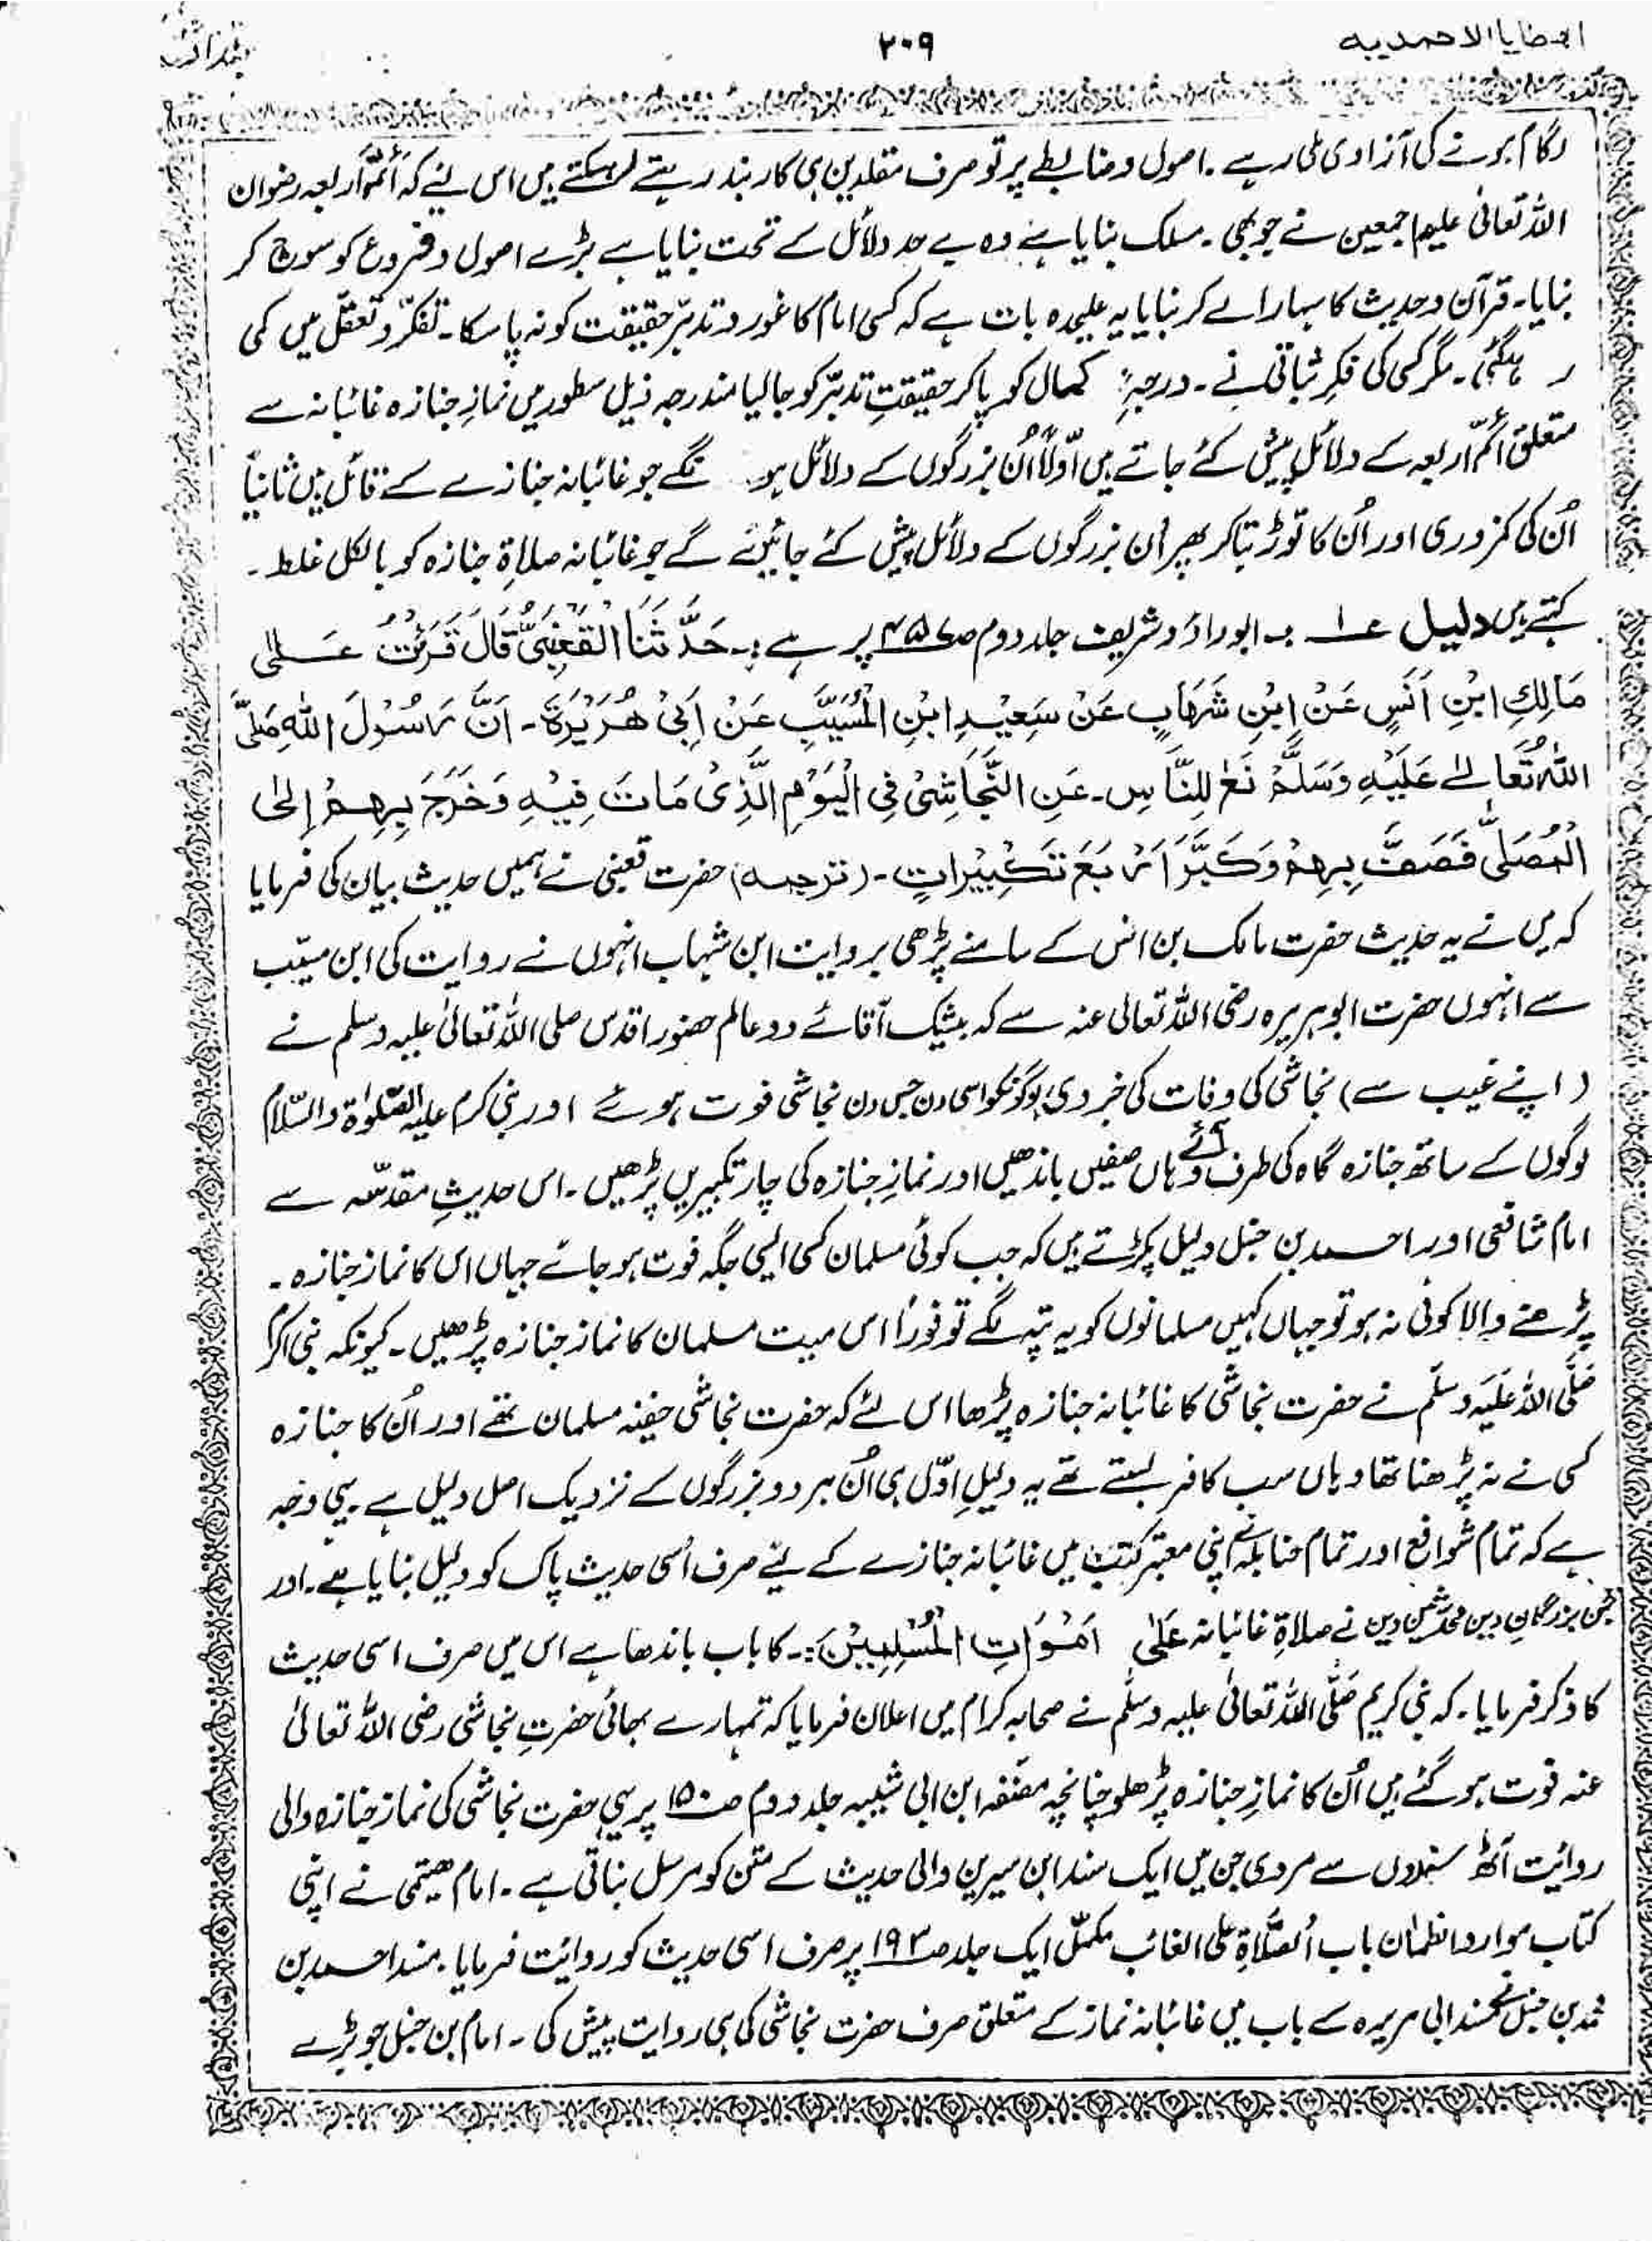 العطایا الاحمدیہ
۲۰۹
لگام ہونے کی آزادی ملی رہے ۔ اصول و ضابطے پر تو صرف مقلدین ہی کاربند رہتے سکتے ہیں اس لئے کہ أئمّہ اربعہ رضوان
اللہ تعالیٰ علیہم اجمعین نے جو بھی ۔ مسلک بنایا ہے وہ بے حد دلائل کے تحت بنایا ہے بڑے اصول و فروع کو سوچ کر
بنایا ۔ قرآن و حدیث کا سہارا لے کر بنایا یہ علیحدہ بات ہے کہ کسی امام کا غور و تدبّر حقیقت کو نہ پا سکا ۔ تفکّر و تعقّل میں کمی
ر ہگئی ۔ مگر کسی کی فکرِ ثباتی نے ۔ درجہِ کمال کو پا کر حقیقتِ تدبّر کو جا لیا مندرجہ ذیل سطور میں نمازِ جنازہ غائبانہ سے
متعلق أئمّہ اربعہ کے دلائل پیش کئے جاتے ہیں اوّلاً اُن بزرگوں کے دلائل ہو نگے جو غائبانہ جنازے کے قائل ہیں ثانیاً
اُن کی کمزوری اور اُن کا توڑ بتا کر پھر اُن بزرگوں کے دلائل پیش کئے جائیں گے جو غائبانہ صلاۃِ جنازہ کو بالکل غلط ۔
کہتے ہیں دلیل ع۱ :۔ ابو داؤد شریف جلد دوم ص۴۵۷ پر ہے :۔ حَدَّثَنَا الْقَعْنَبِیُّ قَالَ قَرَئْتُ عَلٰی
مَالِكِ ابْنِ اَنَسٍ عَنْ اِبْنِ شَهَابٍ عَنْ سَعِیْدِ ابْنِ الْمُسَیَّبِ عَنْ اَبِیْ هُرَیْرَةَ ۔ اَنَّ رَسُوْلَ اللهِ صَلَّی
اللهُ تَعَالٰے عَلَیْهِ وَسَلَّمْ نَعٰ لِلنَّاسِ ۔ عَنِ النَّجَاشِیْ فِی الْیَوْمِ الَّذِیْ مَاتَ فِیْهِ وَخَرَجَ بِهِمْ اِلیٰ
الْمُصَلّٰی فَصَفَّ بِهِمْ وَكَبَّرَ اَرْبَعَ تَكْبِیْرَاتٍ ۔ (ترجمہ) حضرت قعنبی نے ہمیں حدیث بیان کی فرمایا
کہ میں نے یہ حدیث حضرت مالک بن انس کے سامنے پڑھی بروایت ابن شہاب انہوں نے روایت کی ابن مسیّب
سے انہوں حضرت ابوہریرہ رضی اللہ تعالیٰ عنہ سے کہ بیشک آقائے دو عالم حضور اقدس صلی اللہ تعالیٰ علیہ وسلم نے
(اپنے غیب سے) نجاشی کی وفات کی خبر دی لوگونکو اسی دن جس دن نجاشی فوت ہوئے اور نبی کرم علیہ الصّلوٰۃ والسّلام
لوگوں کے ساتھ جنازہ گاہ کی طرف آئے وہاں صفیں باندھیں اور نمازِ جنازہ کی چار تکبیریں پڑھیں ۔ اس حدیثِ مقدسّہ سے
امام شافعی اور احمد بن حنبل دلیل پکڑتے ہیں کہ جب کوئی مسلمان کسی ایسی جگہ فوت ہو جائے جہاں اس کا نماز جنازہ ۔
پڑھنے والا کوئی نہ ہو تو جہاں کہیں مسلمانوں کو یہ پتہ لگے تو فوراً اس میت مسلمان کا نماز جنازہ پڑھیں ۔ کیونکہ نبی اکرم
صَلَّی اللہُ عَلَیْہِ وسلّم نے حضرت نجاشی کا غائبانہ جنازہ پڑھا اس لئے کہ حضرت نجاشی خفیہ مسلمان تھے اور اُن کا جنازہ
کسی نے نہ پڑھنا تھا وہاں سب کافر بستے تھے یہ دلیلِ اوّل ہی اُن ہر دو بزرگوں کے نزدیک اصل دلیل ہے ۔ یہی وجہ
ہے کہ تمام شوافع اور تمام حنابلہ نے اپنی معتبر کتب میں غائبانہ جنازے کے لیے صرف اُسی حدیث پاک کو دلیل بنایا ہے ۔ اور
جن بزرگانِ دین محدثین دین نے صلاۃِ غائبانہ عَلٰی اَمْوَاتِ الْمُسْلِمِیْنَ :۔ کا باب باندھا ہے اس میں صرف اسی حدیث
کا ذکر فرمایا ۔ کہ نبی کریم صَلَّی اللہُ تعالیٰ علیہ وسلّم نے صحابہ کرام میں اعلان فرمایا کہ تمہارے بھائی حضرتِ نجاشی رضی اللہ تعالیٰ
عنہ فوت ہو گئے ہیں اُن کا نمازِ جنازہ پڑھلو چنانچہ مصَنّفہ ابن ابی شیبہ جلد دوم صـ۱۵۰ پر یہی حضرت نجاشی کی نماز جنازہ والی
روائیت آٹھ سندوں سے مروی جن میں ایک سند ابن سیرین والی حدیث کے متن کو مرسل بناتی ہے ۔ امام ھیتمی نے اپنی
کتاب موارد الظمٰان باب اُلصَّلاۃِ علی الغائب مکمّل ایک جلد صـ۱۹۳ پر صرف اسی حدیث کو روائیت فرمایا ۔ مسند احمد بن
محمد بن حنبل نے مسند ابی ہریرہ کے باب میں غائبانہ نماز کے متعلق صرف حضرت نجاشی کی ہی روایت پیش کی ۔ امام بن حنبل جو بڑے